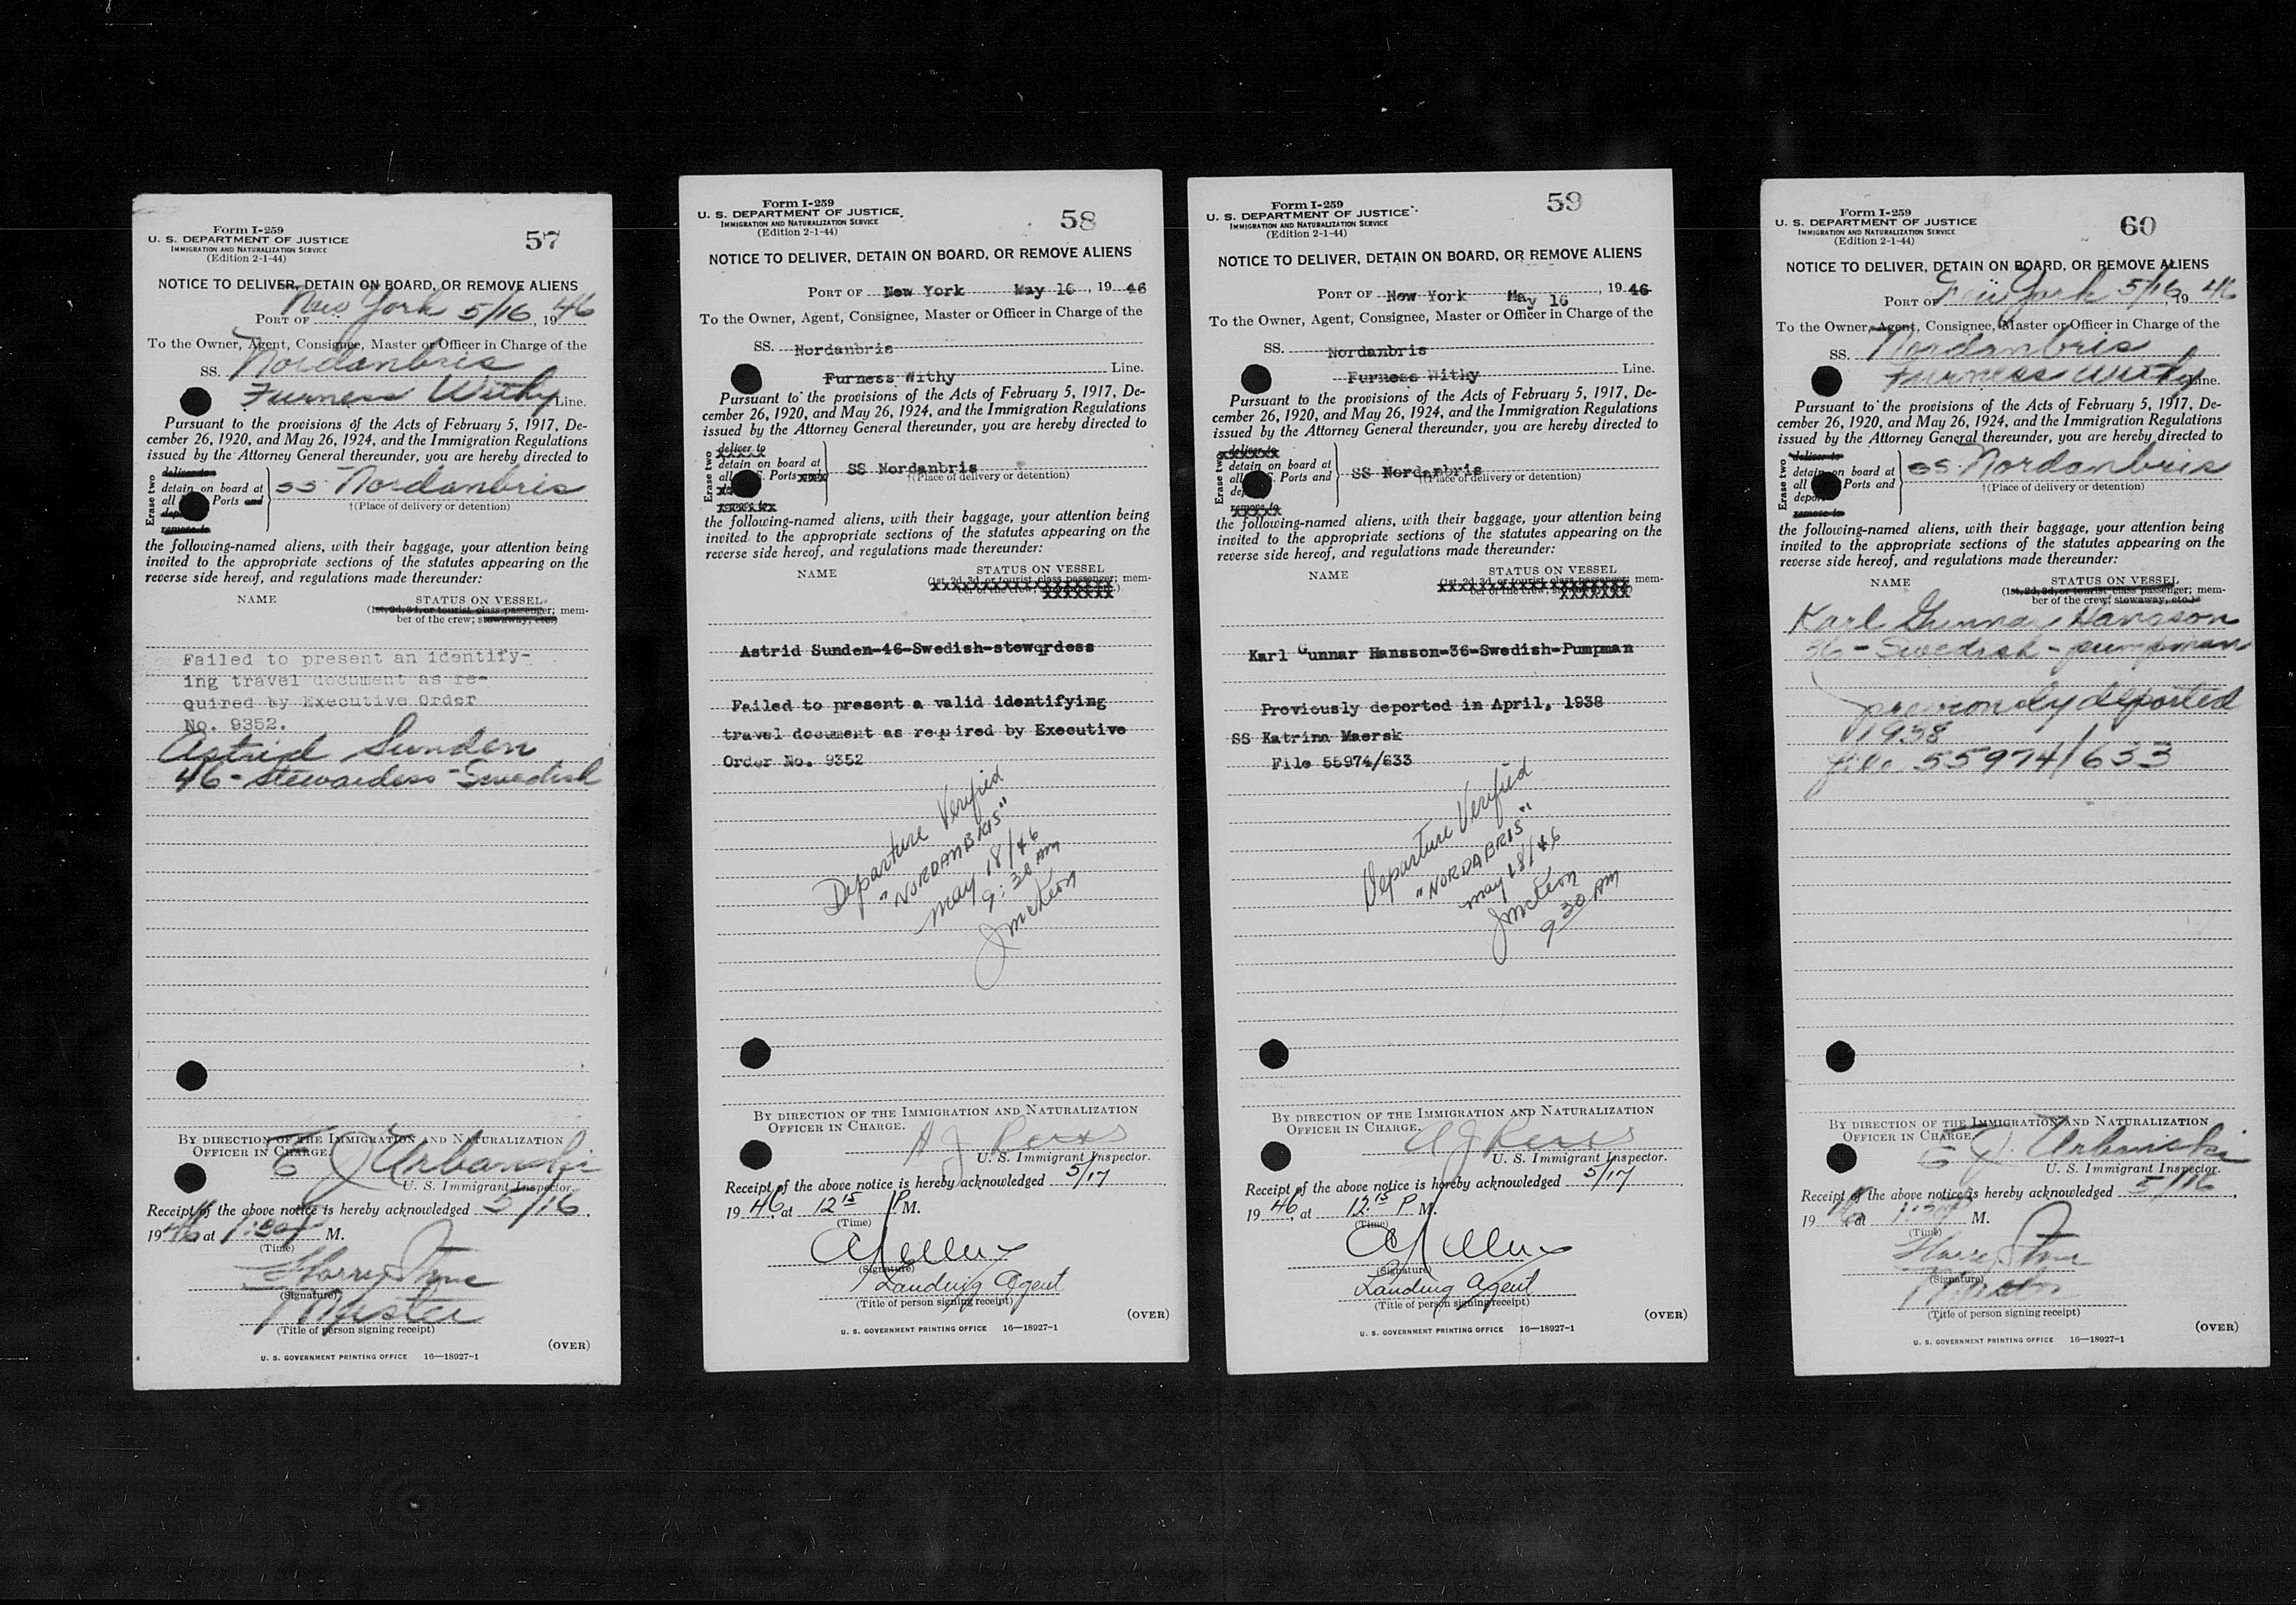 Form I-259
U. S. DEPARTMENT OF JUSTICE
IMMIGRATION AND NATURALIZATION SERVICE
(Edition 2-1-44)
57
NOTICE TO DELIVER, DETAIN ON BOARD, OR REMOVE ALIENS
PORT OF New York 5/16, 1946
To the Owner, Agent, Consignee, Master or Officer in Charge of the
SS. Nordanbris
Furness Withy Line.
Pursuant to the provisions of the Acts of February 5, 1917, De-
cember 26, 1920, and May 26, 1924, and the Immigration Regulations
issued by the Attorney General thereunder, you are hereby directed to
Erase two
deliver to
detain on board at
all Ports and
remove to
SS Nordanbris
†(Place of delivery or detention)
the following-named aliens, with their baggage, your attention being
invited to the appropriate sections of the statutes appearing on the
reverse side hereof, and regulations made thereunder:
NAME STATUS ON VESSEL
(1st, 2d, 3d, or tourist class passenger; mem-
ber of the crew; stowaway, etc.)
Failed to present an identify-
ing travel document as re-
quired by Executive Order
No. 9352.
Astrid Sunden
46-Stewardess-Swedish
BY DIRECTION OF THE IMMIGRATION AND NATURALIZATION
OFFICER IN CHARGE.
E J Urbanski
U. S. Immigrant Inspector.
Receipt of the above notice is hereby acknowledged 5/16,
1946 at 1:30P M.
(Time)
Harry
(Signature)
Master
(Title of person signing receipt)
(OVER)
U. S. GOVERNMENT PRINTING OFFICE 16—18927-1
Form I-259
U. S. DEPARTMENT OF JUSTICE
IMMIGRATION AND NATURALIZATION SERVICE
(Edition 2-1-44)
58
NOTICE TO DELIVER, DETAIN ON BOARD, OR REMOVE ALIENS
PORT OF New York May 16, 1946
To the Owner, Agent, Consignee, Master or Officer in Charge of the
SS. Nordanbris
Furness Withy Line.
Pursuant to the provisions of the Acts of February 5, 1917, De-
cember 26, 1920, and May 26, 1924, and the Immigration Regulations
issued by the Attorney General thereunder, you are hereby directed to
Erase two
deliver to
detain on board at
all S. Ports
remove to
SS Nordanbris
†(Place of delivery or detention)
the following-named aliens, with their baggage, your attention being
invited to the appropriate sections of the statutes appearing on the
reverse side hereof, and regulations made thereunder:
NAME STATUS ON VESSEL
(1st, 2d, 3d, or tourist class passenger; mem-
ber of the crew; xxxxxxxx.)
Astrid Sunden-46-Swedish-stewqrdess
Failed to present a valid identifying
travel document as required by Executive
Order No. 9352
Departure Verified
"NORDANBRIS"
May 18/46
9:30 AM
J McKeon
BY DIRECTION OF THE IMMIGRATION AND NATURALIZATION
OFFICER IN CHARGE.
U. S. Immigrant Inspector.
Receipt of the above notice is hereby acknowledged 5/17,
1946, at 12 15 P M.
(Time)
(Signature)
Landing Agent
(Title of person signing receipt)
(OVER)
U. S. GOVERNMENT PRINTING OFFICE 16—18927-1
Form I-259
U. S. DEPARTMENT OF JUSTICE
IMMIGRATION AND NATURALIZATION SERVICE
(Edition 2-1-44)
59
NOTICE TO DELIVER, DETAIN ON BOARD, OR REMOVE ALIENS
PORT OF New York May 16, 1946
To the Owner, Agent, Consignee, Master or Officer in Charge of the
SS. Nordanbris
Furness Withy Line.
Pursuant to the provisions of the Acts of February 5, 1917, De-
cember 26, 1920, and May 26, 1924, and the Immigration Regulations
issued by the Attorney General thereunder, you are hereby directed to
Erase two
deliver to
detain on board at
all S. Ports and
remove to
SS Nordanbris
†(Place of delivery or detention)
the following-named aliens, with their baggage, your attention being
invited to the appropriate sections of the statutes appearing on the
reverse side hereof, and regulations made thereunder:
NAME STATUS ON VESSEL
(1st, 2d, 3d, or tourist class passenger; mem-
ber of the crew; xxxxxxxx)
Karl Gunnar Hansson-36-Swedish-Pumpman
Previously deported in April, 1938
SS Katrina Maersk
File 55974/633
Departure Verified
"NORDABRIS"
May 18/46
J McKeon
9 30 AM
BY DIRECTION OF THE IMMIGRATION AND NATURALIZATION
OFFICER IN CHARGE.
U. S. Immigrant Inspector.
Receipt of the above notice is hereby acknowledged 5/17,
1946, at 12 15 P M.
(Time)
(Signature)
Landing Agent
(Title of person signing receipt)
(OVER)
U. S. GOVERNMENT PRINTING OFFICE 16—18927-1
Form I-259
U. S. DEPARTMENT OF JUSTICE
IMMIGRATION AND NATURALIZATION SERVICE
(Edition 2-1-44)
60
NOTICE TO DELIVER, DETAIN ON BOARD, OR REMOVE ALIENS
PORT OF New York 5/16, 1946
To the Owner, Agent, Consignee, Master or Officer in Charge of the
SS. Nordanbris
Furness Withy Line.
Pursuant to the provisions of the Acts of February 5, 1917, De-
cember 26, 1920, and May 26, 1924, and the Immigration Regulations
issued by the Attorney General thereunder, you are hereby directed to
Erase two
deliver to
detain on board at
all Ports and
remove to
SS Nordanbris
†(Place of delivery or detention)
the following-named aliens, with their baggage, your attention being
invited to the appropriate sections of the statutes appearing on the
reverse side hereof, and regulations made thereunder:
NAME STATUS ON VESSEL
(1st, 2d, 3d, or tourist class passenger; mem-
ber of the crew; stowaway, etc.)
Karl Gunnar Hansson
36-Swedish-pumpman
previously deported
1938
file 55974/633
BY DIRECTION OF THE IMMIGRATION AND NATURALIZATION
OFFICER IN CHARGE.
E J. Urbanski
U. S. Immigrant Inspector.
Receipt of the above notice is hereby acknowledged 5/16,
1946 at 1:30P M.
(Time)
Harry
(Signature)
Master
(Title of person signing receipt)
(OVER)
U. S. GOVERNMENT PRINTING OFFICE 16—18927-1